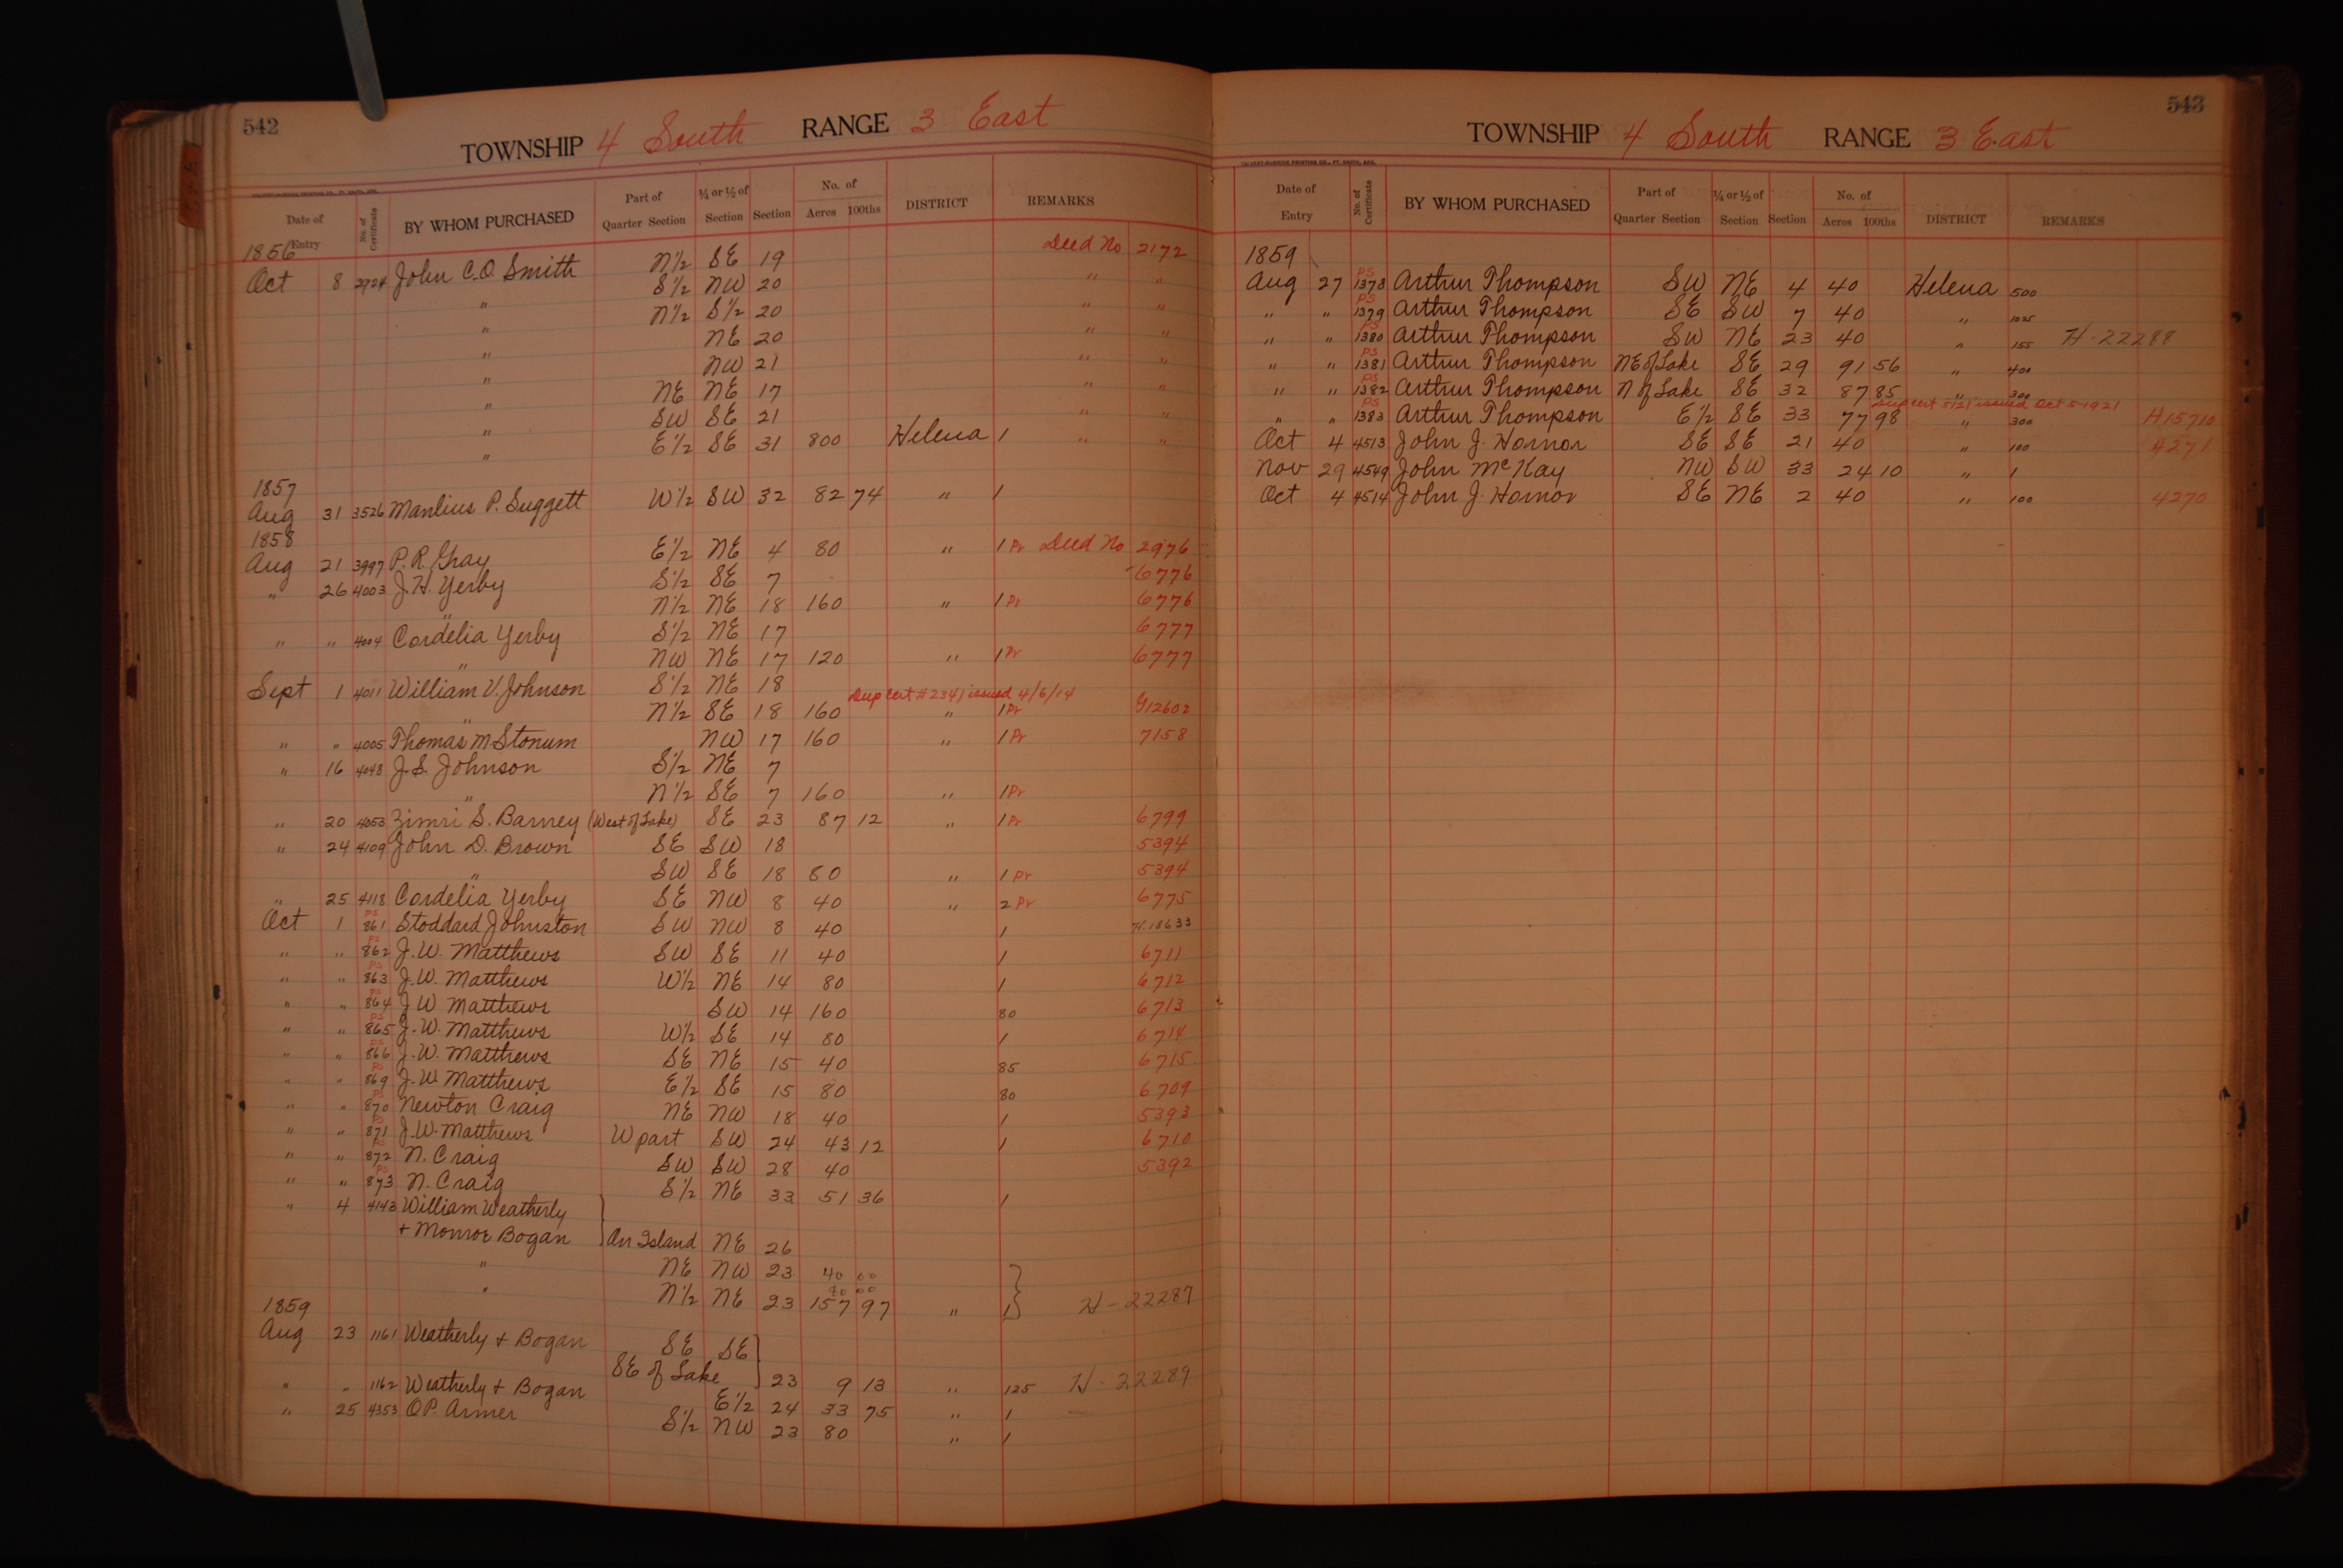 542
TOWNSHIP 4 South RANGE 3 East
Date of Entry No. of Certificate BY WHOM PURCHASED Part of Quarter Section ¼ or ½ of Section Section No. of Acres 100ths DISTRICT REMARKS
1856 Deed No 2172
Oct 8 2924 John C.O. Smith N½ SE 19
" S½ NW 20 " "
" N½ S½ 20 " "
" NE 20 " "
" NW 21 " "
" NE NE 17 " "
" SW SE 21 " "
" E½ SE 31 800 Helena 1 " "
1857
Aug 31 3526 Manlius P. Suggett W½ SW 32 82 74 " 1
1858
Aug 21 3997 P.R. Gray E½ NE 4 80 " 1 Pr Deed No 2976
" 26 4003 J.H. Yerby S½ SE 7 6776
" N½ NE 18 160 " 1 Pr 6776
" " 4004 Cordelia Yerby S½ NE 17 6777
" NW NE 17 120 " 1 Pr 6777
Sept 1 4011 William V. Johnson S½ NE 18
Dup cert #2341 issued 4/6/14
" N½ SE 18 160 " 1 Pr G12602
" " 4005 Thomas M Stonum NW 17 160 " 1 Pr 7158
" 16 4048 J.S. Johnson S½ NE 7
" N½ SE 7 160 " 1 Pr
" 20 4053 Zimri S. Barney (West of Lake) SE 23 87 12 " 1 Pr 6799
" 24 4109 John D. Brown SE SW 18 5394
" SW SE 18 80 " 1 Pr 5394
" 25 4118 Cordelia Yerby SE NW 8 40 " 2 Pr 6775
Oct 1 PS 861 Stoddard Johnston SW NW 8 40 1 H.18633
" " PS 862 J.W. Matthews SW SE 11 40 1 6711
" " PS 863 J.W. Matthews W½ NE 14 80 1 6712
" " PS 864 J W Matthews SW 14 160 80 6713
" " PS 865 J.W. Matthews W½ SE 14 80 1 6714
" " PS 866 J.W. Matthews SE NE 15 40 85 6715
" " PS 869 J.W. Matthews E½ SE 15 80 80 6709
" " PS 870 Newton Craig NE NW 18 40 1 5393
" " PS 871 J.W. Matthews W part SW 24 43 12 1 6710
" " PS 872 N. Craig SW SW 28 40 5392
" " PS 873 N. Craig S½ NE 33 51 36 1
" 4 4143 William Weatherly
+ Monroe Bogan } On Island NE 26
" NE NW 23 40 00
80 00
" N½ NE 23 157 97 " 1 } H-22287
1859
Aug 23 1161 Weatherly + Bogan SE SE }
SE of Lake 23 9 13 " 125 H-22289
" " 1162 Weatherly + Bogan E½ 24 33 75 " 1
" 25 4353 O.P. Armer S½ NW 23 80 " 1
543
TOWNSHIP 4 South RANGE 3 East
Date of Entry No. of Certificate BY WHOM PURCHASED Part of Quarter Section ¼ or ½ of Section Section No. of Acres 100ths DISTRICT REMARKS
1859
Aug 27 PS 1378 Arthur Thompson SW NE 4 40 Helena 500
" " PS 1379 Arthur Thompson SE SW 7 40 " 1025
" " PS 1380 Arthur Thompson SW NE 23 40 " 155 H-22288
" " PS 1381 Arthur Thompson NE of Lake SE 29 91 56 " 400
" " PS 1382 Arthur Thompson N of Lake SE 32 87 85 " 300
Dup cert 5121 issued Oct 5-1921
" " PS 1383 Arthur Thompson E½ SE 33 77 98 " 300 H15710
Oct 4 4513 John J. Hornor SE SE 21 40 " 100 4271
Nov 29 4549 John McKay NW SW 33 24 10 " 1
Oct 4 4514 John J. Hornor SE NE 2 40 " 100 4270